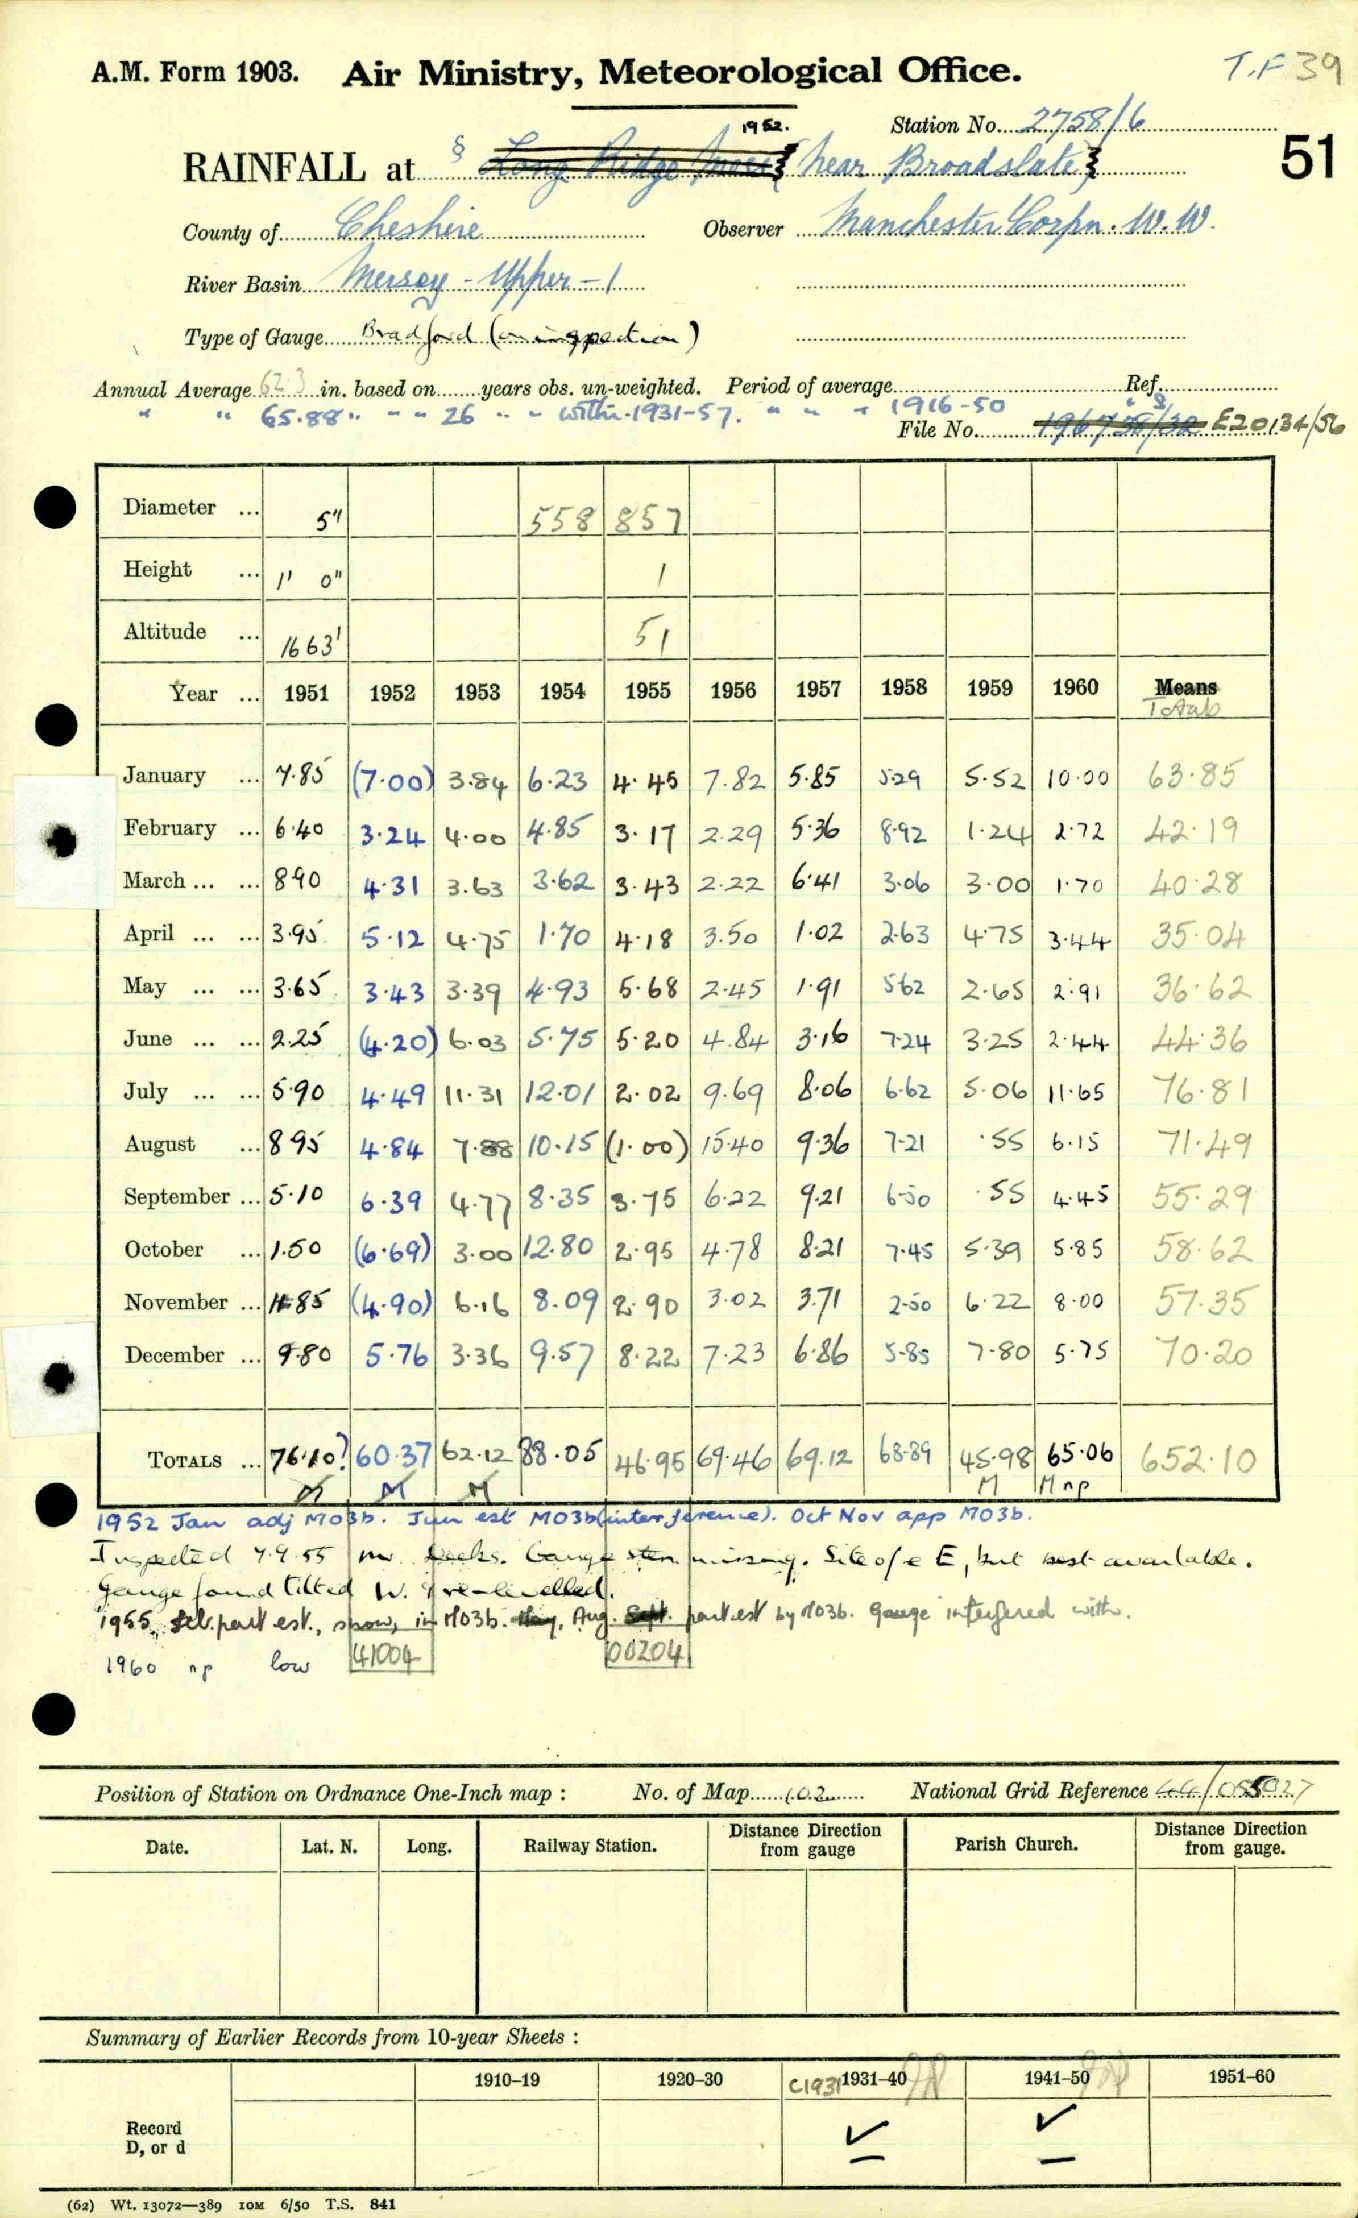 A.M. Form 1903. Air Ministry, Meteorological Office. T.F 39
Station No. 2758/6
1952.
RAINFALL at § Long Ridge Moss { near Broadslate } 51
County of Cheshire Observer Manchester Corpn. W.W.
River Basin Mersey - Upper - 1
Type of Gauge Bradford (on inspection)
Annual Average 62.3 in. based on years obs. un-weighted. Period of average Ref.
" " 65.88 " " " 26 " " within 1931-57. " " " 1916-50
File No. E20134/56
Diameter ... 5" 558 857
Height ... 1' 0" 1
Altitude ... 1663' 51
Year ... 1951 1952 1953 1954 1955 1956 1957 1958 1959 1960 Means
Totals
January ... 7.85 (7.00) 3.84 6.23 4.45 7.82 5.85 5.29 5.52 10.00 63.85
February ... 6.40 3.24 4.00 4.85 3.17 2.29 5.36 8.92 1.24 2.72 42.19
March ... ... 8.90 4.31 3.63 3.62 3.43 2.22 6.41 3.06 3.00 1.70 40.28
April ... ... 3.95 5.12 4.75 1.70 4.18 3.50 1.02 2.63 4.75 3.44 35.04
May ... ... 3.65 3.43 3.39 4.93 5.68 2.45 1.91 5.62 2.65 2.91 36.62
June ... ... 2.25 (4.20) 6.03 5.75 5.20 4.84 3.16 7.24 3.25 2.44 44.36
July ... ... 5.90 4.49 11.31 12.01 2.02 9.69 8.06 6.62 5.06 11.65 76.81
August ... 8.95 4.84 7.88 10.15 (1.00) 15.40 9.36 7.21 .55 6.15 71.49
September ... 5.10 6.39 4.77 8.35 3.75 6.22 9.21 6.50 .55 4.45 55.29
October ... 1.50 (6.69) 3.00 12.80 2.95 4.78 8.21 7.45 5.39 5.85 58.62
November ... 11.85 (4.90) 6.16 8.09 2.90 3.02 3.71 2.50 6.22 8.00 57.35
December ... 9.80 5.76 3.36 9.57 8.22 7.23 6.86 5.85 7.80 5.75 70.20
TOTALS ... 76.10? 60.37 62.12 88.05 46.95 69.46 69.12 68.89 45.98 65.06 652.10
M M M M M np
1952 Jan adj MO3b. Jun est MO3b (interference). Oct Nov app MO3b.
Inspected 7.9.55 Mr Deeks. Gauge missing. Site ofe E, but best available.
Gauge found tilted W. & re-levelled.
1955. Feb. part est., snow, in MO3b. May, Aug. Sept. part est by MO3b. Gauge interfered with.
1960 np low 41004 00204
Position of Station on Ordnance One-Inch map : No. of Map 102 National Grid Reference
Date. Lat. N. Long. Railway Station. Distance Direction from gauge Parish Church. Distance Direction from gauge.
Summary of Earlier Records from 10-year Sheets :
1910–19 1920–30 C1931 1931–40 1941–50 1951–60
Record
D, or d ✓ ✓
(62) Wt. 13072—389 10M 6/50 T.S. 841